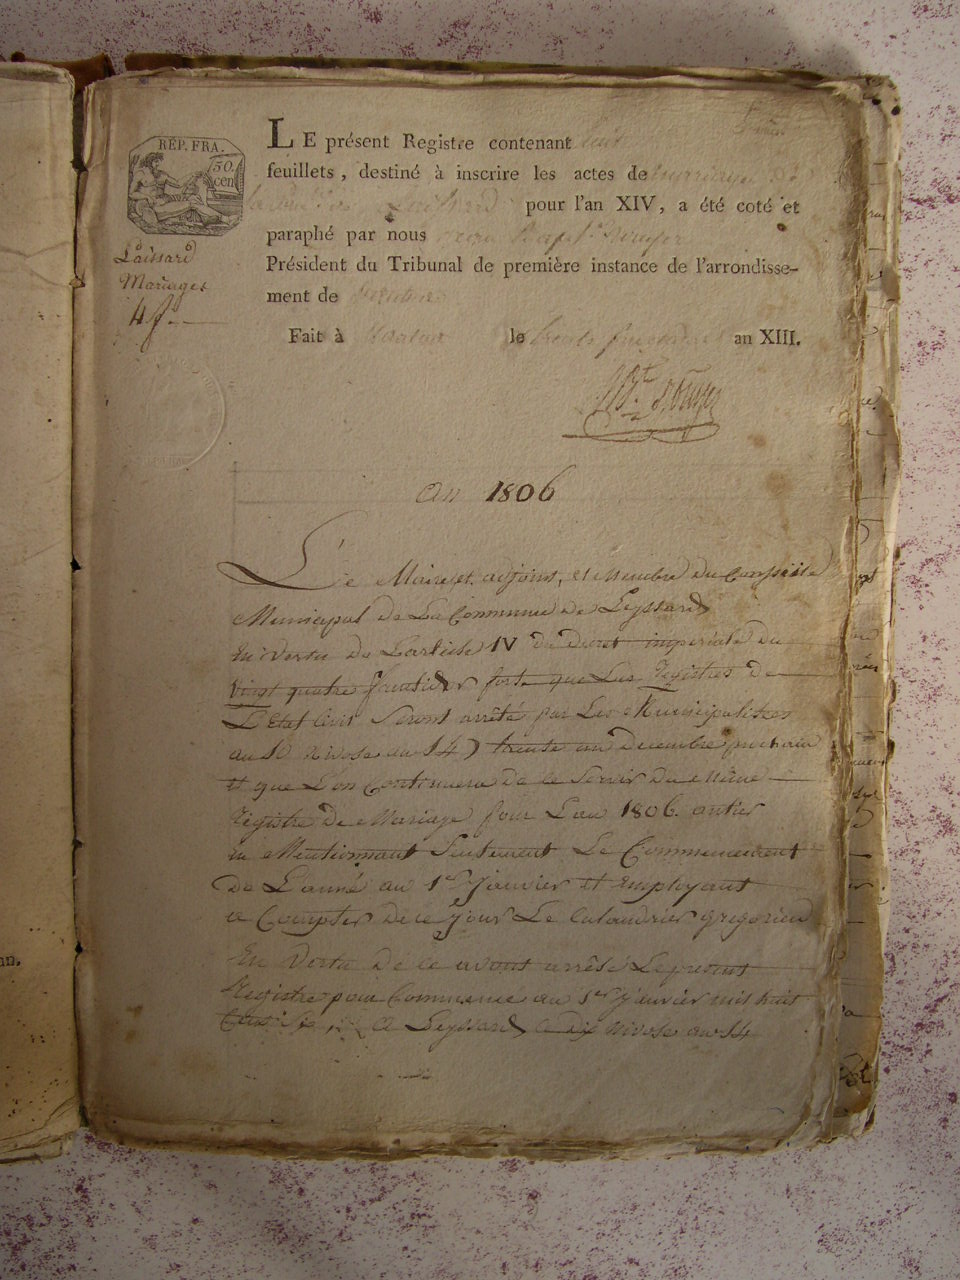 RÉP. FRA.
50.
cen
LE présent Registre contenant huit
feuillets, destiné à inscrire les actes de mariage de
la pour l'an XIV, a été coté et
paraphé par nous
Président du Tribunal de première instance de l'arrondisse-
ment de Nantua
Fait à Nantua le trente fructidor an XIII.
Laissard
Mariages
4 f.
an 1806
Le Maire et adjoint, et Membre du Conseille
Municipal de La Commune de Leyssard
En Vertu de Larticle IV du Decret imperiale du
vingt quatre fructidor porte que Les Registres de
L'Etat Civil Seront arrêté par Les Municipalitees
au 10 Nivose an 14) trente un Decembre prochain
et que L'on Continuera de ce Servir du Même
Registre de Mariage pour Lan 1806. entier
en Mentionnant Seulement Le Commencement
De L'année au 1er Janvier et Employant
a Compter de ce Jour Le Calandrier gregorien
En Vertu de ce avont arrêsé Le present
Registre pour Commence au 1er Janvier mil huit
Cent Six, a Leyssard ce dix Nivose an 14
nn.